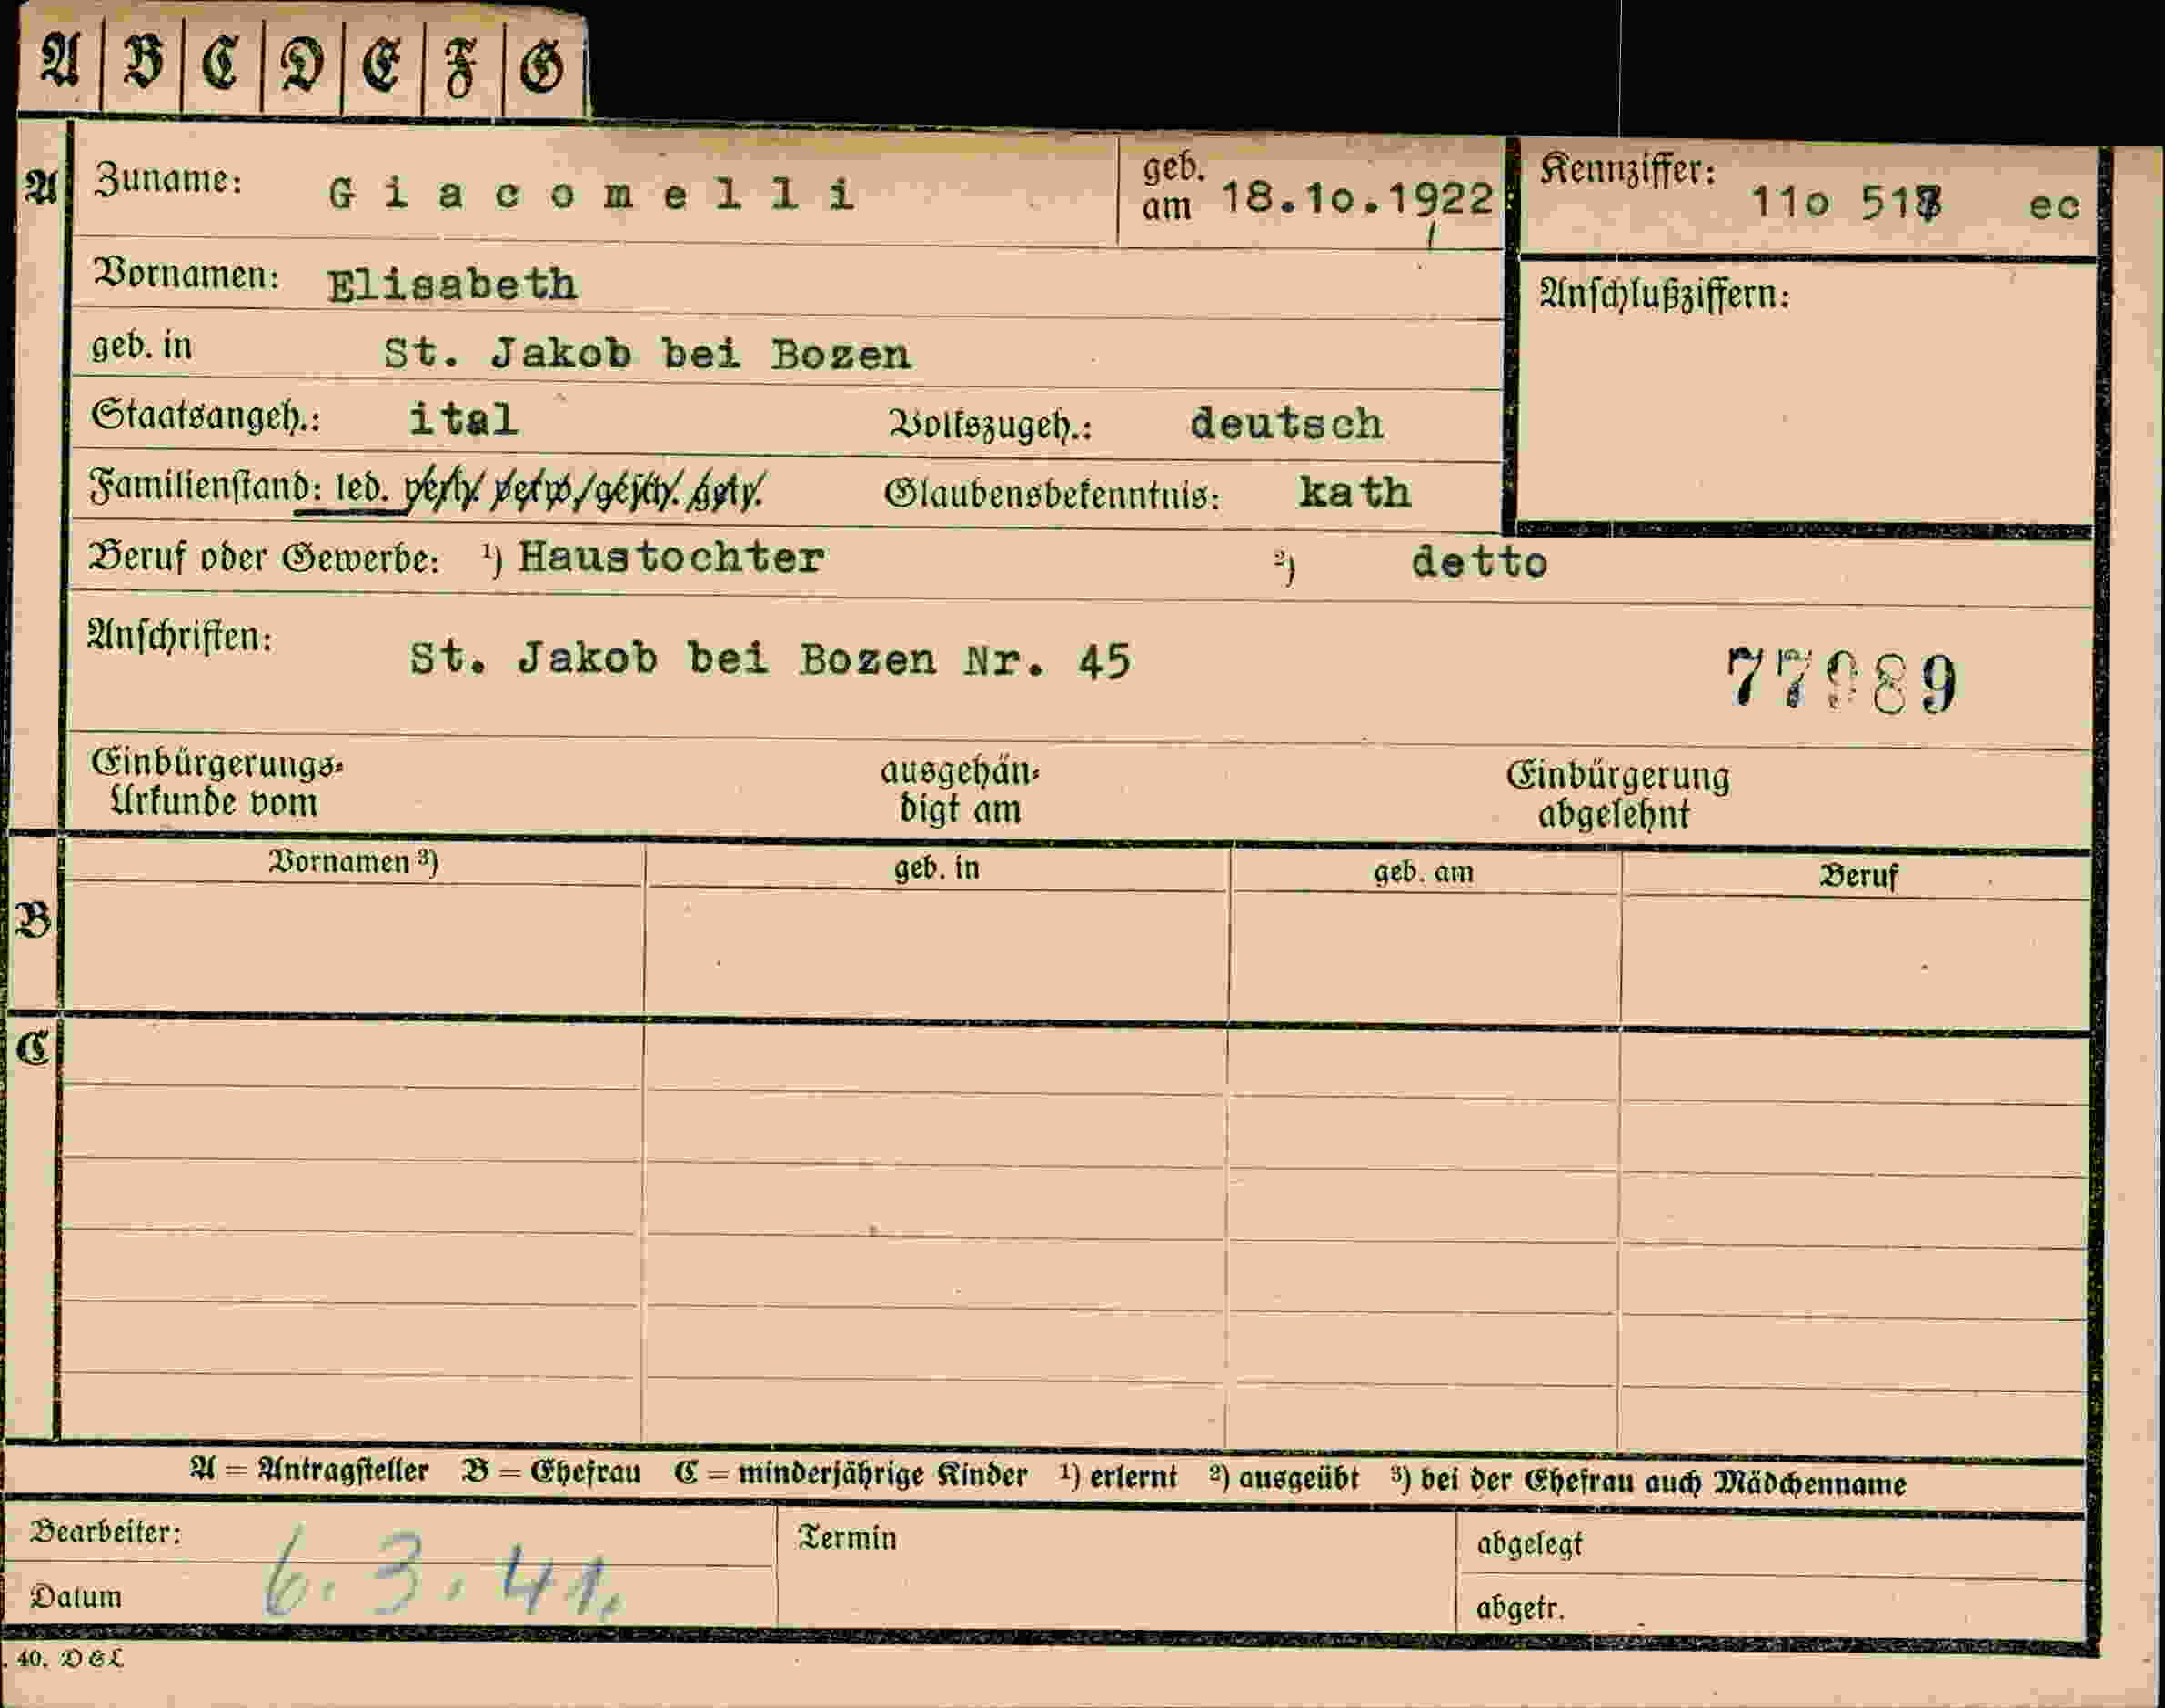 A B C D E F G
A Zuname: Giacomelli geb. am 18.10.1922 Kennziffer: 11o 51 ec
Vornamen: Elisabeth Anschlußziffern:
geb. in St. Jakob bei Bozen
Staatsangeh.: ital Volkszugeh.: deutsch
Familienstand: led. verh. verw. gesch. getr. Glaubensbekenntnis: kath
Beruf oder Gewerbe: ¹) Haustochter ²) detto
Anschriften: St. Jakob bei Bozen Nr. 45
Einbürgerungs- ausgehän- Einbürgerung
Urkunde vom digt am abgelehnt
Vornamen ³) geb. in geb. am Beruf
B
C
A = Antragsteller B = Ehefrau C = minderjährige Kinder ¹) erlernt ²) ausgeübt ³) bei der Ehefrau auch Mädchenname
Bearbeiter: Termin abgelegt
6.3.41.
Datum abgetr.
40. DGL